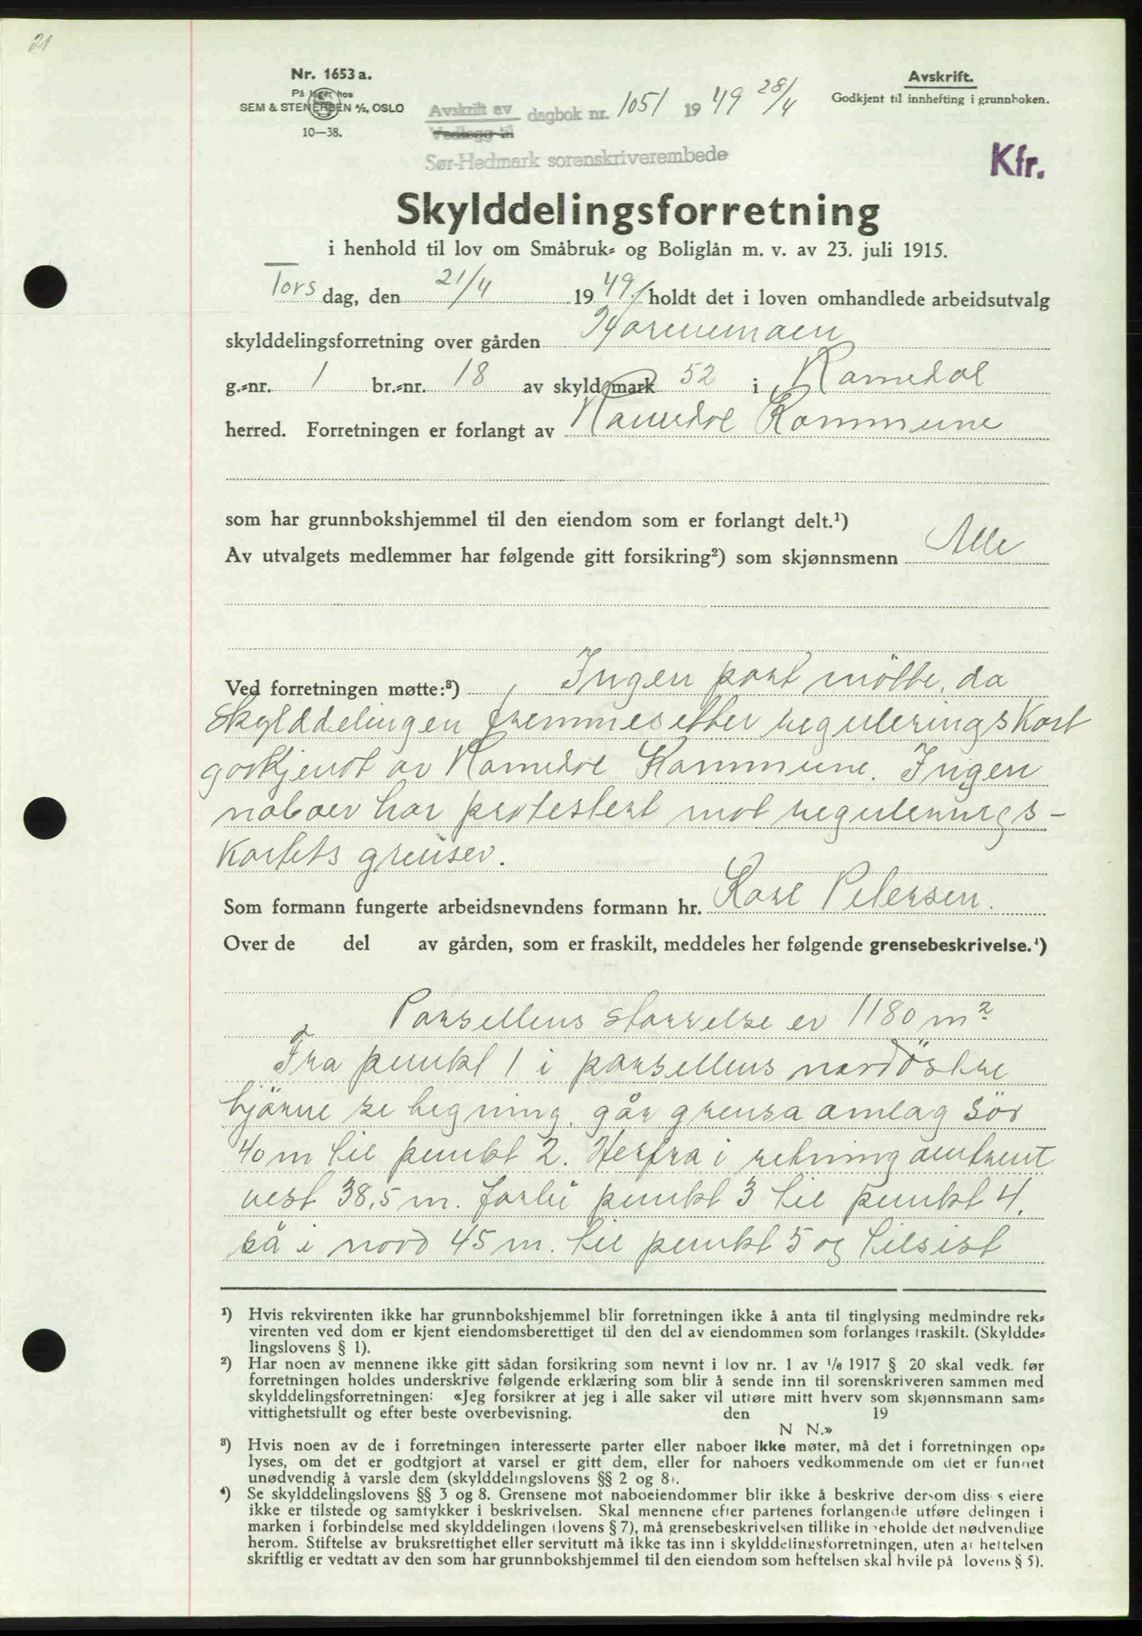 21
Nr. 1653 a.
På lager hos
SEM & STENERSEN A/S, OSLO
10—38.
Avskrift av
Vedlegg til
dagbok nr. 1051 1949 28/4
Sør-Hedmark sorenskriverembede
Avskrift.
Godkjent til innhefting i grunnboken.
Kfr.
Skylddelingsforretning
i henhold til lov om Småbruk- og Boliglån m. v. av 23. juli 1915.
Tors dag, den 21/4 1949. holdt det i loven omhandlede arbeidsutvalg
skylddelingsforretning over gården
g.-nr. 1 br.-nr. 18 av skyld mark 52 i Romedal
herred. Forretningen er forlangt av Romedal Kommune
som har grunnbokshjemmel til den eiendom som er forlangt delt.¹)
Av utvalgets medlemmer har følgende gitt forsikring²) som skjønnsmenn Alle
Ved forretningen møtte:³) Ingen part mötte, da
Skylddelingen fremmes etter reguleringskart
godkjendt av Romedal Kommune. Ingen
naboer har protestert mot regulerings-
kartets grenser.
Som formann fungerte arbeidsnevndens formann hr. Karl Petersen.
Over de del av gården, som er fraskilt, meddeles her følgende grensebeskrivelse.⁴)
Parsellens størrelse er 1180 m²
Fra punkt 1 i parsellens nordöstre
hjörne se tegning, går grensa omlag Sör
40 m til punkt 2. Herfra i retning omtrent
vest 38,5 m. forbi punkt 3 til punkt 4,
så i nord 45 m. til punkt 5 og tilsist
¹) Hvis rekvirenten ikke har grunnbokshjemmel blir forretningen ikke å anta til tinglysing medmindre rek-
virenten ved dom er kjent eiendomsberettiget til den del av eiendommen som forlanges fraskilt. (Skyldde-
lingslovens § 1).
²) Har noen av mennene ikke gitt sådan forsikring som nevnt i lov nr. 1 av 1/6 1917 § 20 skal vedk. før
forretningen holdes underskrive følgende erklæring som blir å sende inn til sorenskriveren sammen med
skylddelingsforretningen: «Jeg forsikrer at jeg i alle saker vil utføre mitt hverv som skjønnsmann sam-
vittighetsfullt og efter beste overbevisning. den 19
N N.»
³) Hvis noen av de i forretningen interesserte parter eller naboer ikke møter, må det i forretningen op-
lyses, om det er godtgjort at varsel er gitt dem, eller for naboers vedkommende om det er funnet
unødvendig å varsle dem (skylddelingslovens §§ 2 og 8).
⁴) Se skylddelingslovens §§ 3 og 8. Grensene mot naboeiendommer blir ikke å beskrive dersom disses eiere
ikke er tilstede og samtykker i beskrivelsen. Skal mennene efter partenes forlangende utføre delingen i
marken i forbindelse med skylddelingen (lovens § 7), må grensebeskrivelsen tillike inneholde det nødvendige
herom. Stiftelse av bruksrettighet eller servitutt må ikke tas inn i skylddelingsforretningen, uten at heftelsen
skriftlig er vedtatt av den som har grunnbokshjemmel til den eiendom som heftelsen skal hvile på lovens § 5).